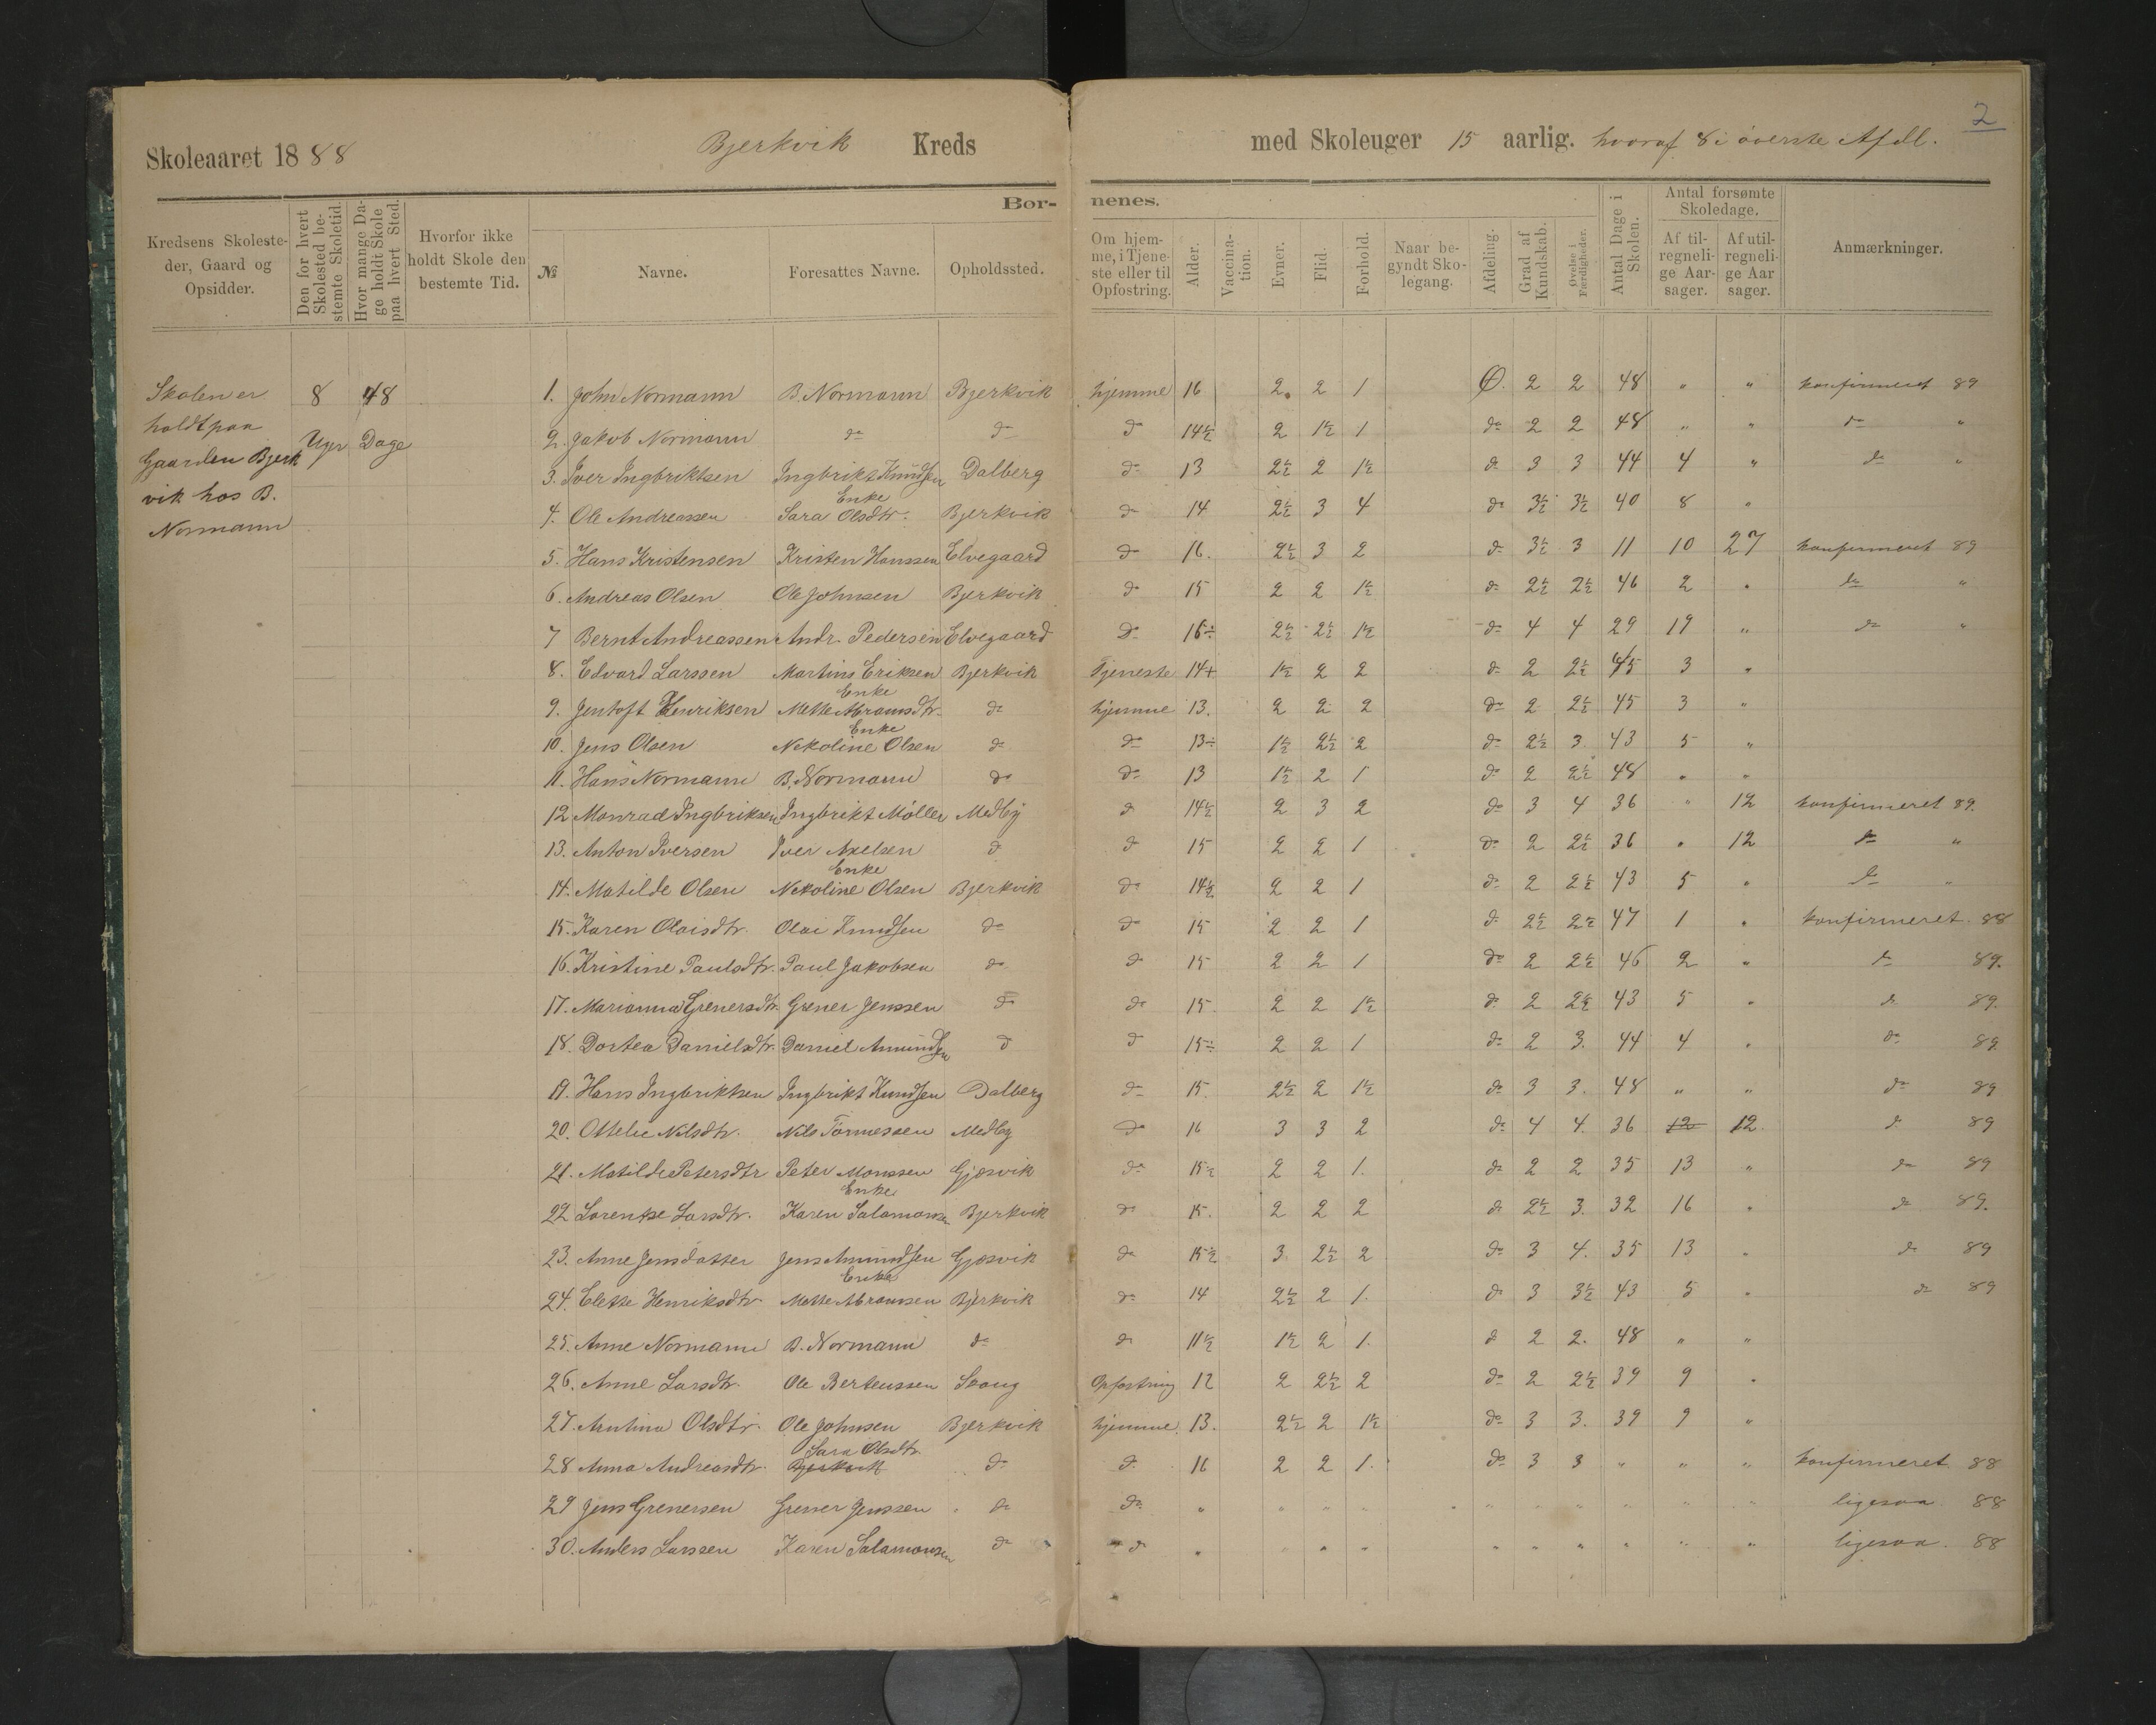 2
Skoleaaret 1888 Bjerkvik Kreds med Skoleuger 15 aarlig. hvoraf 8 i överste Afdl.
Bør- nenes.
Kredsens Skolesteder, Gaard og Opsidder. | Den for hvert Skolested bestemte Skoletid. | Hvor mange Dage holdt Skole paa hvert Sted. | Hvorfor ikke holdt Skole den bestemte Tid. | № | Navne. | Foresattes Navne. | Opholdssted. | Om hjemme, i Tjeneste eller til Opfostring. | Alder. | Vaccination. | Evner. | Flid. | Forhold. | Naar begyndt Skolegang. | Afdeling. | Grad af Kundskab. | Øvelse i Færdigheder. | Antal Dage i Skolen. | Antal forsømte Skoledage. | Af tilregnelige Aarsager. | Af utilregnelige Aarsager. | Anmærkninger.
Skolen er 8 48
holdt paa Uger Dage
Gaarden Bjerk
vik hos B.
Normann
1. John Normann B. Normann Bjerkvik hjemme 16 2. 2 1 Ø. 2 2 48 " " konfirmeret 89
2. Jakob Normann do do do 14½ 2 1½ 1 do 2 2 48 " " do "
3. Iver Ingbriktsen Ingbrikt Knudsen Dalberg do 13 2½ 2 1½ do 3 3 44 4 " do "
4. Ole Andreassen Enke Sara Olsdtr. Bjerkvik do 14 2½ 3 4 do 3½ 3½ 40 8 "
5. Hans Kristensen Kristen Hanssen Elvegaard do 16. 2½ 3 2 do 3½ 3 11 10 27 konfirmeret 89
6. Andreas Olsen Ole Johnsen Bjerkvik do 15 2 2 1½ do 2½ 2½ 46 2 " do "
7 Bernt Andreassen Andr. Pedersen Elvegaard do 16÷ 2½ 2½ 1½ do 4 4 29 19 " do "
8. Edvard Larssen Martins Eriksen Bjerkvik Tjeneste 14+ 1½ 2 2 do 2 2½ 45 3 "
9. Jentoft Henriksen Enke Mette Abramsdtr. do hjemme 13. 2 2 2 do 2 2½ 45 3 "
10. Jens Olsen Enke Nekoline Olsen do do 13÷ 1½ 2½ 2 do 2½ 3. 43 5 "
11. Hans Normann B. Normann do do 13 1½ 2 1 do 2 2½ 48 " "
12 Monrad Ingbriksen Ingbrikt Möller Medby do 14½ 2 3 2 do 3 4 36 " 12 konfirmeret 89.
13. Anton Iversen Iver Axelsen do do 15 2 2 1 do 2 2½ 36 " 12 do "
14. Matilde Olsen Enke Nekoline Olsen Bjerkvik do 14½ 2 2 1 do 2 2½ 43 5 " do "
15. Karen Olaisdtr. Olai Knudsen do do 15 2 2 1 do 2½ 2½ 47 1 " konfirmeret 88
16. Kristine Paulsdtr. Paul Jakobsen do do 15 2 2 1 do 2 2½ 46 2 " do 89.
17. Marianna Grenersdtr. Grener Jenssen do do 15. 2 2 1½ do 2 2½ 43 5 " do 89.
18. Dortea Danielsdtr. Daniel Amundsen do do 15÷ 2 2 1 do 2 3. 44 4 " do 89.
19. Hans Ingbriktsen Ingbrikt Knudsen Dalberg do 15. 2½ 2 1½ do 3 3. 48 " " do 89
20. Ottelie Nilsdtr. Nils Tormessen Medby do 16 3 3 2 do 4 4. 36 12 12. do 89
21. Matilde Petersdtr Peter Monssen Gjøsvik do 15½ 2 2 1. do 2 2 35 13 " do 89
22 Lorentse Larsdtr. Enke Karen Salamonsen Bjerkvik do 15. 2 2 2 do 2½ 3. 32 16 " do 89.
23. Anne Jensdatter Jens Amundsen Gjøsvik do 15½ 3 2½ 2 do 3 4. 35 13 " do 89
24. Elette Henriksdtr. Enke Mette Abramsen Bjerkvik do 14 2½ 2 1. do 3 3½ 43 5 " do 89
25. Anne Normann B. Normann do do 11½ 1½ 2 1. do 2 2. 48 " "
26. Anne Larsdtr. Ole Berteussen Skoug Opfostring 12 2 2½ 2 do 2 2½ 39 9 "
27. Antina Olsdtr. Ole Johnsen Bjerkvik hjemme 13. 2½ 2 1½ do 3 3. 39 9 "
28 Anna Andreasdtr. Sara Olsdtr. Bjerkvik do do 16 2 2 1. do 3 3 " " " konfirmeret 88
29 Jens Grenersen Grener Jenssen do do " " " " " " " " " " ligesaa 88
30. Anders Larssen Karen Salamonsen do do " " " " " " " " " " ligesaa. 88